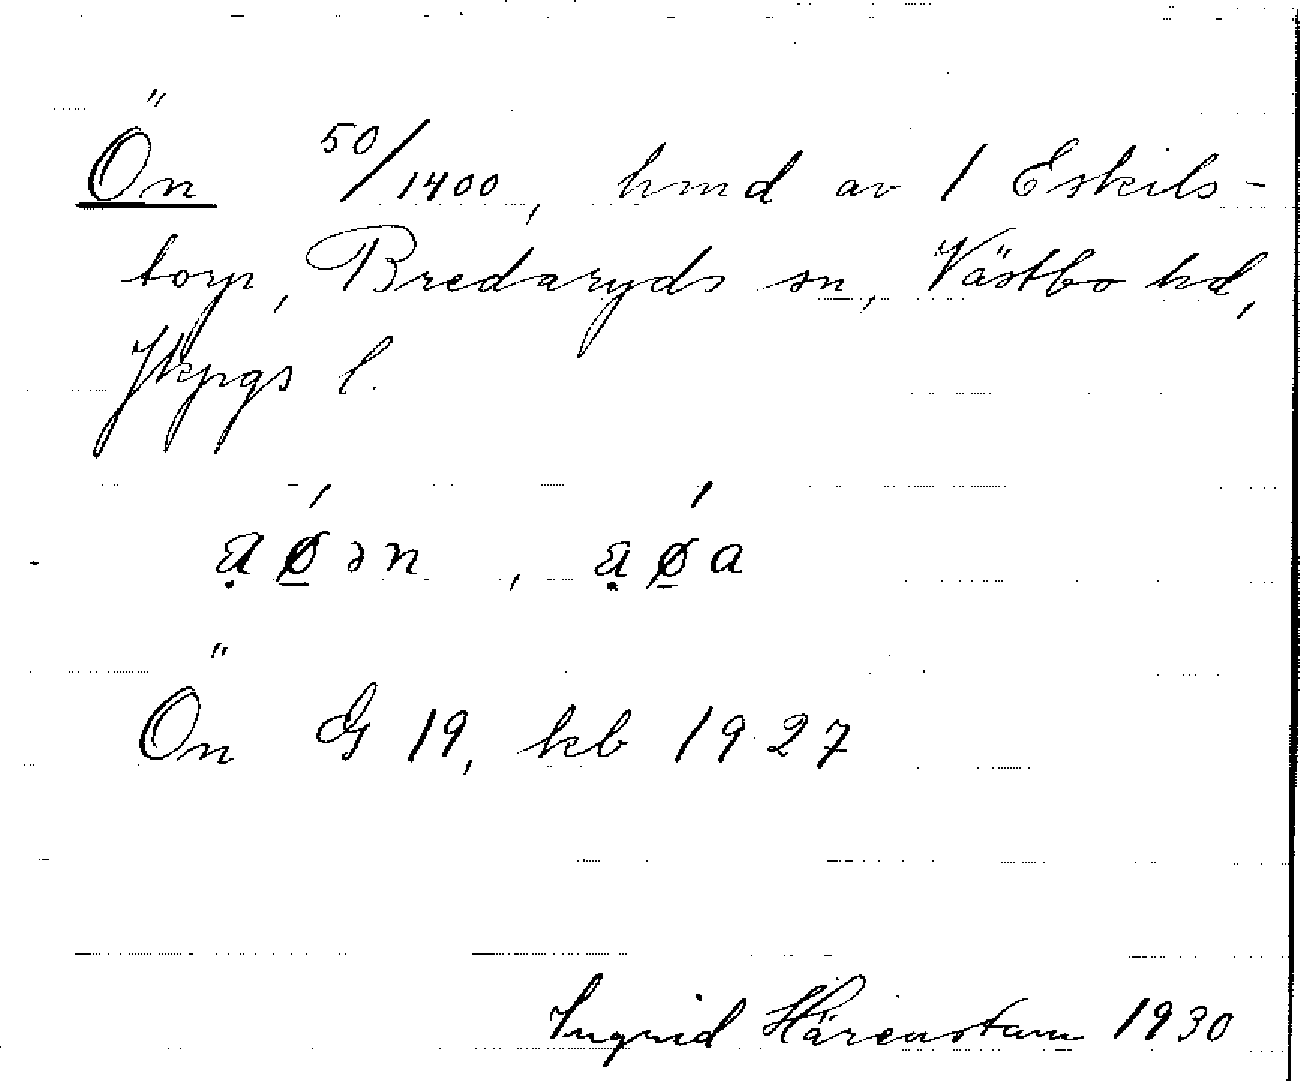 Ön 50/1400, hmd av 1 Eskils-
torp, Bredaryds sn, Västbo hd,
Jkpgs l.
Ön G 19, kb 1927
Ingrid Härenstam 1930